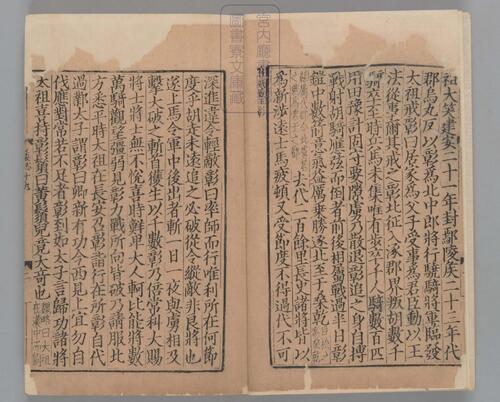 祖大笑建安二十一年封鄢陵侯二十三年代
郡烏丸反以彰為北中郎將行驍騎將軍臨發
太祖戒彰曰居家為父子受事為君臣動以王
法從事爾其戒之彰北征入涿郡界叛胡數千
騎卒至時兵馬未集唯有步卒千人騎數百匹
用田豫計固守要隙虜乃散退彰追之身自搏
戰射胡騎應弦而倒者前後相屬戰過半日彰
鎧中數箭意氣益厲乘勝逐北至于桑乾
去代二百餘里長史諸將皆以
為新涉遠士馬疲頓又受節度不得過代不可
深進違令輕敵彰曰率師而行唯利所在何節
度乎胡走未遠追之必破從令縱敵非良將也
遂上馬令軍中後出者斬一日一夜與虜相及
擊大破之斬首獲生以千數彰乃倍常科大賜
將士將士無不悅喜時鮮卑大人軻比能將數
萬騎觀望彊弱見彰力戰所向皆破乃請服北
方悉平時太祖在長安召彰詣行在所彰自代
過鄴太子謂彰曰卿新有功今西見上宜勿自
伐應對常若不足者彰到如太子言歸功諸將
太祖喜持彰鬚曰黃鬚兒竟大奇也
宮內廳
圖書寮文庫藏